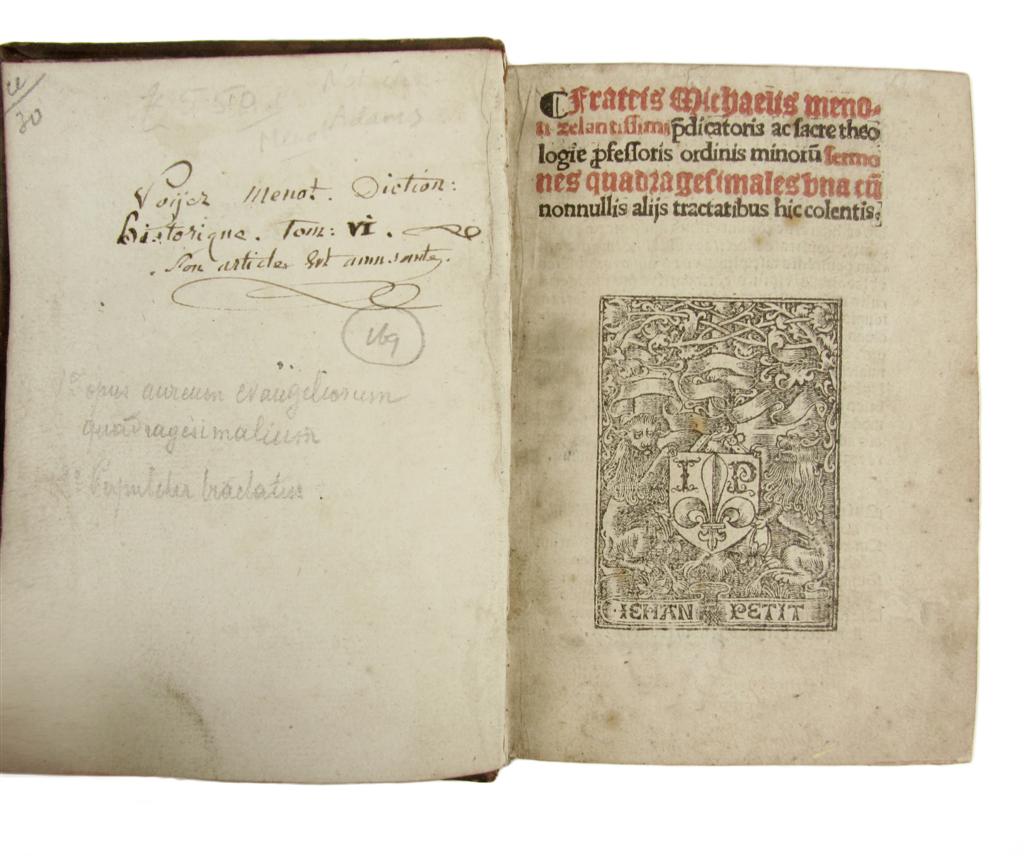 30
Not in
Adams
Voyez Menot. Diction:
historique. Tom: VI.
Son article est amusante.
169
1º opus aureum evangeliorum
quadragesimalium
2º tractatus.
Fratris Michaelis meno-
ti zelantissimi p̄dicatoris ac sacre theo
logie ꝓfessoris ordinis minorū sermo
nes quadragesimales vna cū
nonnullis alijs tractatibus hic colentis.
I P
IEHAN PETIT